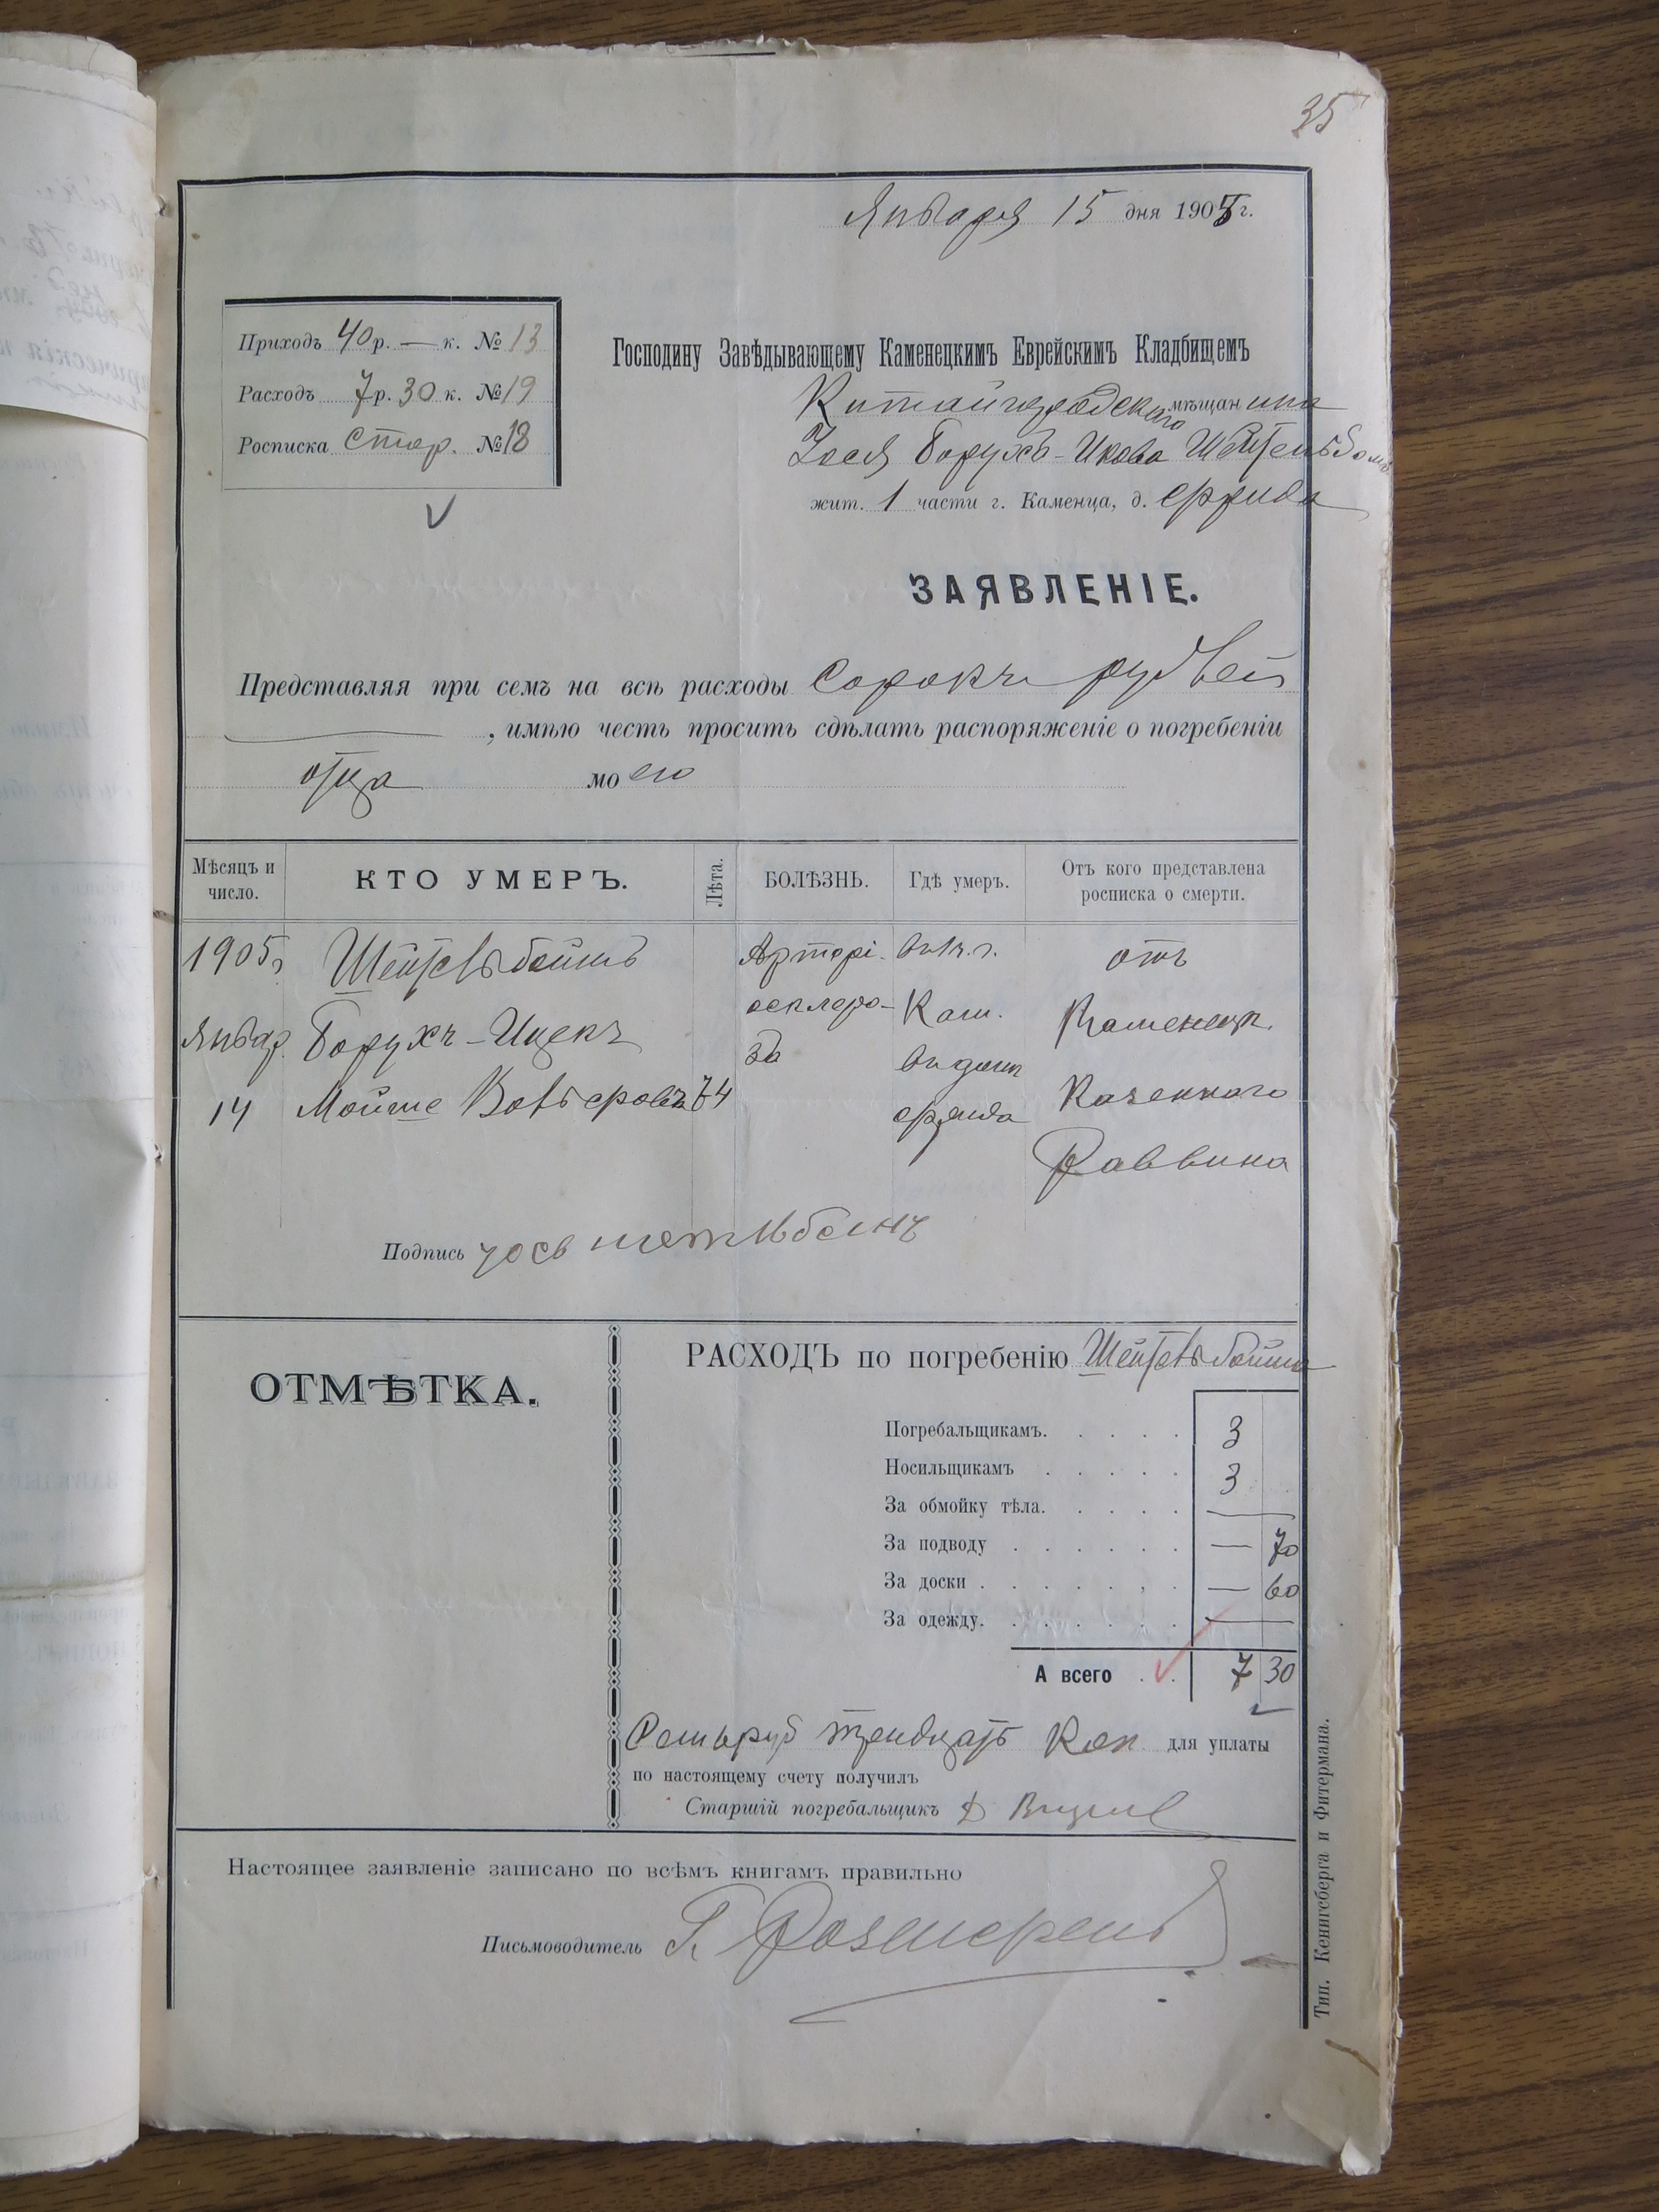 35
Января 15 дня 1905 г.
Приходъ 40 р. — к. № 13
Расходъ 7 р. 30 к. № 19
Росписка стор. № 18
Господину Завѣдывающему Каменецкимъ Еврейскимъ Кладбищемъ
Китайгородского мѣщанина
Борухъ-
жит. 1 части г. Каменца, д.
ЗАЯВЛЕНІЕ.
Представляя при семъ на всѣ расходы Сорокъ рублей
, имѣю честь просить сдѣлать распоряженіе о погребеніи
отца моего
Мѣсяцъ и число.
КТО УМЕРЪ.
Лѣта.
БОЛѢЗНЬ.
Гдѣ умеръ.
Отъ кого представлена росписка о смерти.
1905 Шейтельбоймъ
Январ. Борухъ-Ицекъ
14 Мойше Вольфовичъ 74
Артеріосклероза
Кам.
въ домѣ
отъ
Каменецк.
Казеннаго
Раввина
Подпись
ОТМѢТКА.
РАСХОДЪ по погребенію Шейтельбойма
Погребальщикамъ. 3
Носильщикамъ 3
За обмойку тѣла. —
За подводу — 70
За доски — 60
За одежду. —
А всего 7 30
Семь руб тридцать Коп для уплаты
по настоящему счету получилъ
Старшій погребальщикъ
Настоящее заявленіе записано по всѣмъ книгамъ правильно
Письмоводитель Г.
Тип. Кенигсберга и Фитермана.